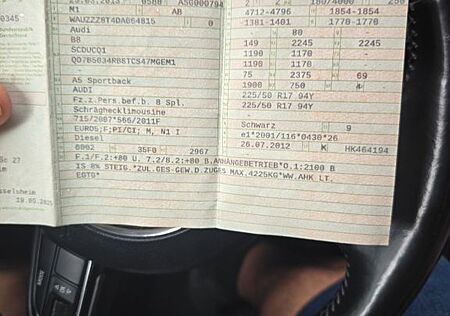 0345
M1
AB
0
WAUZZZ8T4DA064815
Audi
B8
SCDUCQ1
QD7B5034R88TCS47MGEM1
-
A5 Sportback
AUDI
Fz.z.Pers.bef.b. 8 Spl.
Schräghecklimousine
715/2007*566/2011F
EURO5;F;PI/CI; M, N1 I
Diesel
0002 35F0 2967
2 4/000 250
4712-4796 1854-1854
1381-1401 1770-1770
- 80 -
149 2245 2245
- 1190 1170
- 1190 1170
75 2375 69
1900 750
225/50 R17 94Y
225/50 R17 94Y
-
-
Schwarz 9
e1*2001/116*0430*26
26.07.2012 K HK464194
F.1/F.2:+80 U. 7.2/8.2:+80 B.ANHÄNGEBETRIEB*O.1:2100 B
IS 8% STEIG.*ZUL.GES-GEW.D.ZUGES MAX.4225KG*WW.AHK LT.
EGTG*
Sc 27
im
sselsheim
MODE